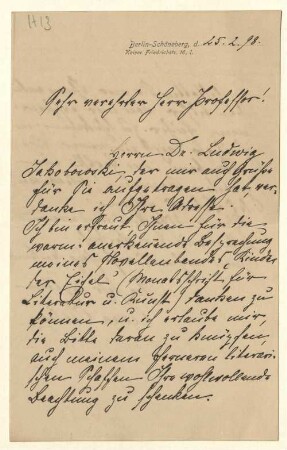 H 13
Berlin-Schöneberg, d. 25.2.98.
Sehr verehrter Herr Professor!
Herrn Dr. Ludwig
Jakobowski, der mir auch Grüße
für Sie aufgetragen hat, ver-
danke ich Ihre Adresse.
Ich bin erfreut, Ihnen für die
warm anerkennende Besprechung
meines Novellenbandes Kinder
der Eifel (Monatsschrift für
Literatur u. Kunst danken zu
können, u. ich erlaube mir,
die Bitte daran zu knüpfen,
auch meinem ferneren literari-
schen Schaffen Ihre wertvolle
Beachtung zu schenken.